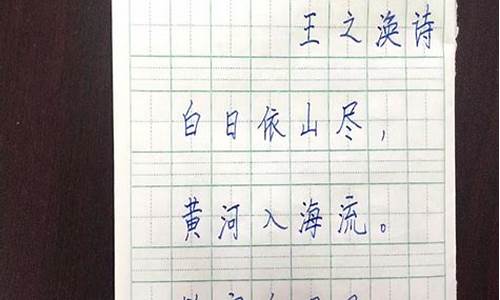 王之涣诗
白日依山尽，
黄河入海流。